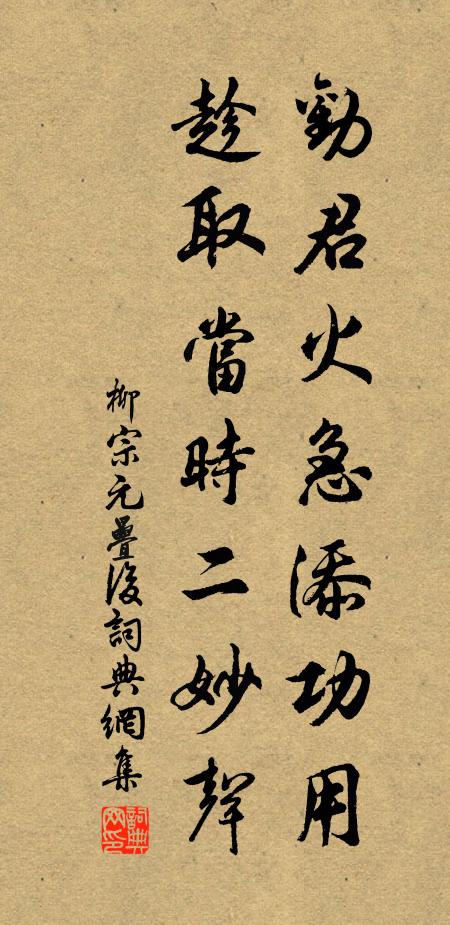 勸君火急添功用
趁取當時二妙聲
柳宗元疊後詞典網集
詞典網印